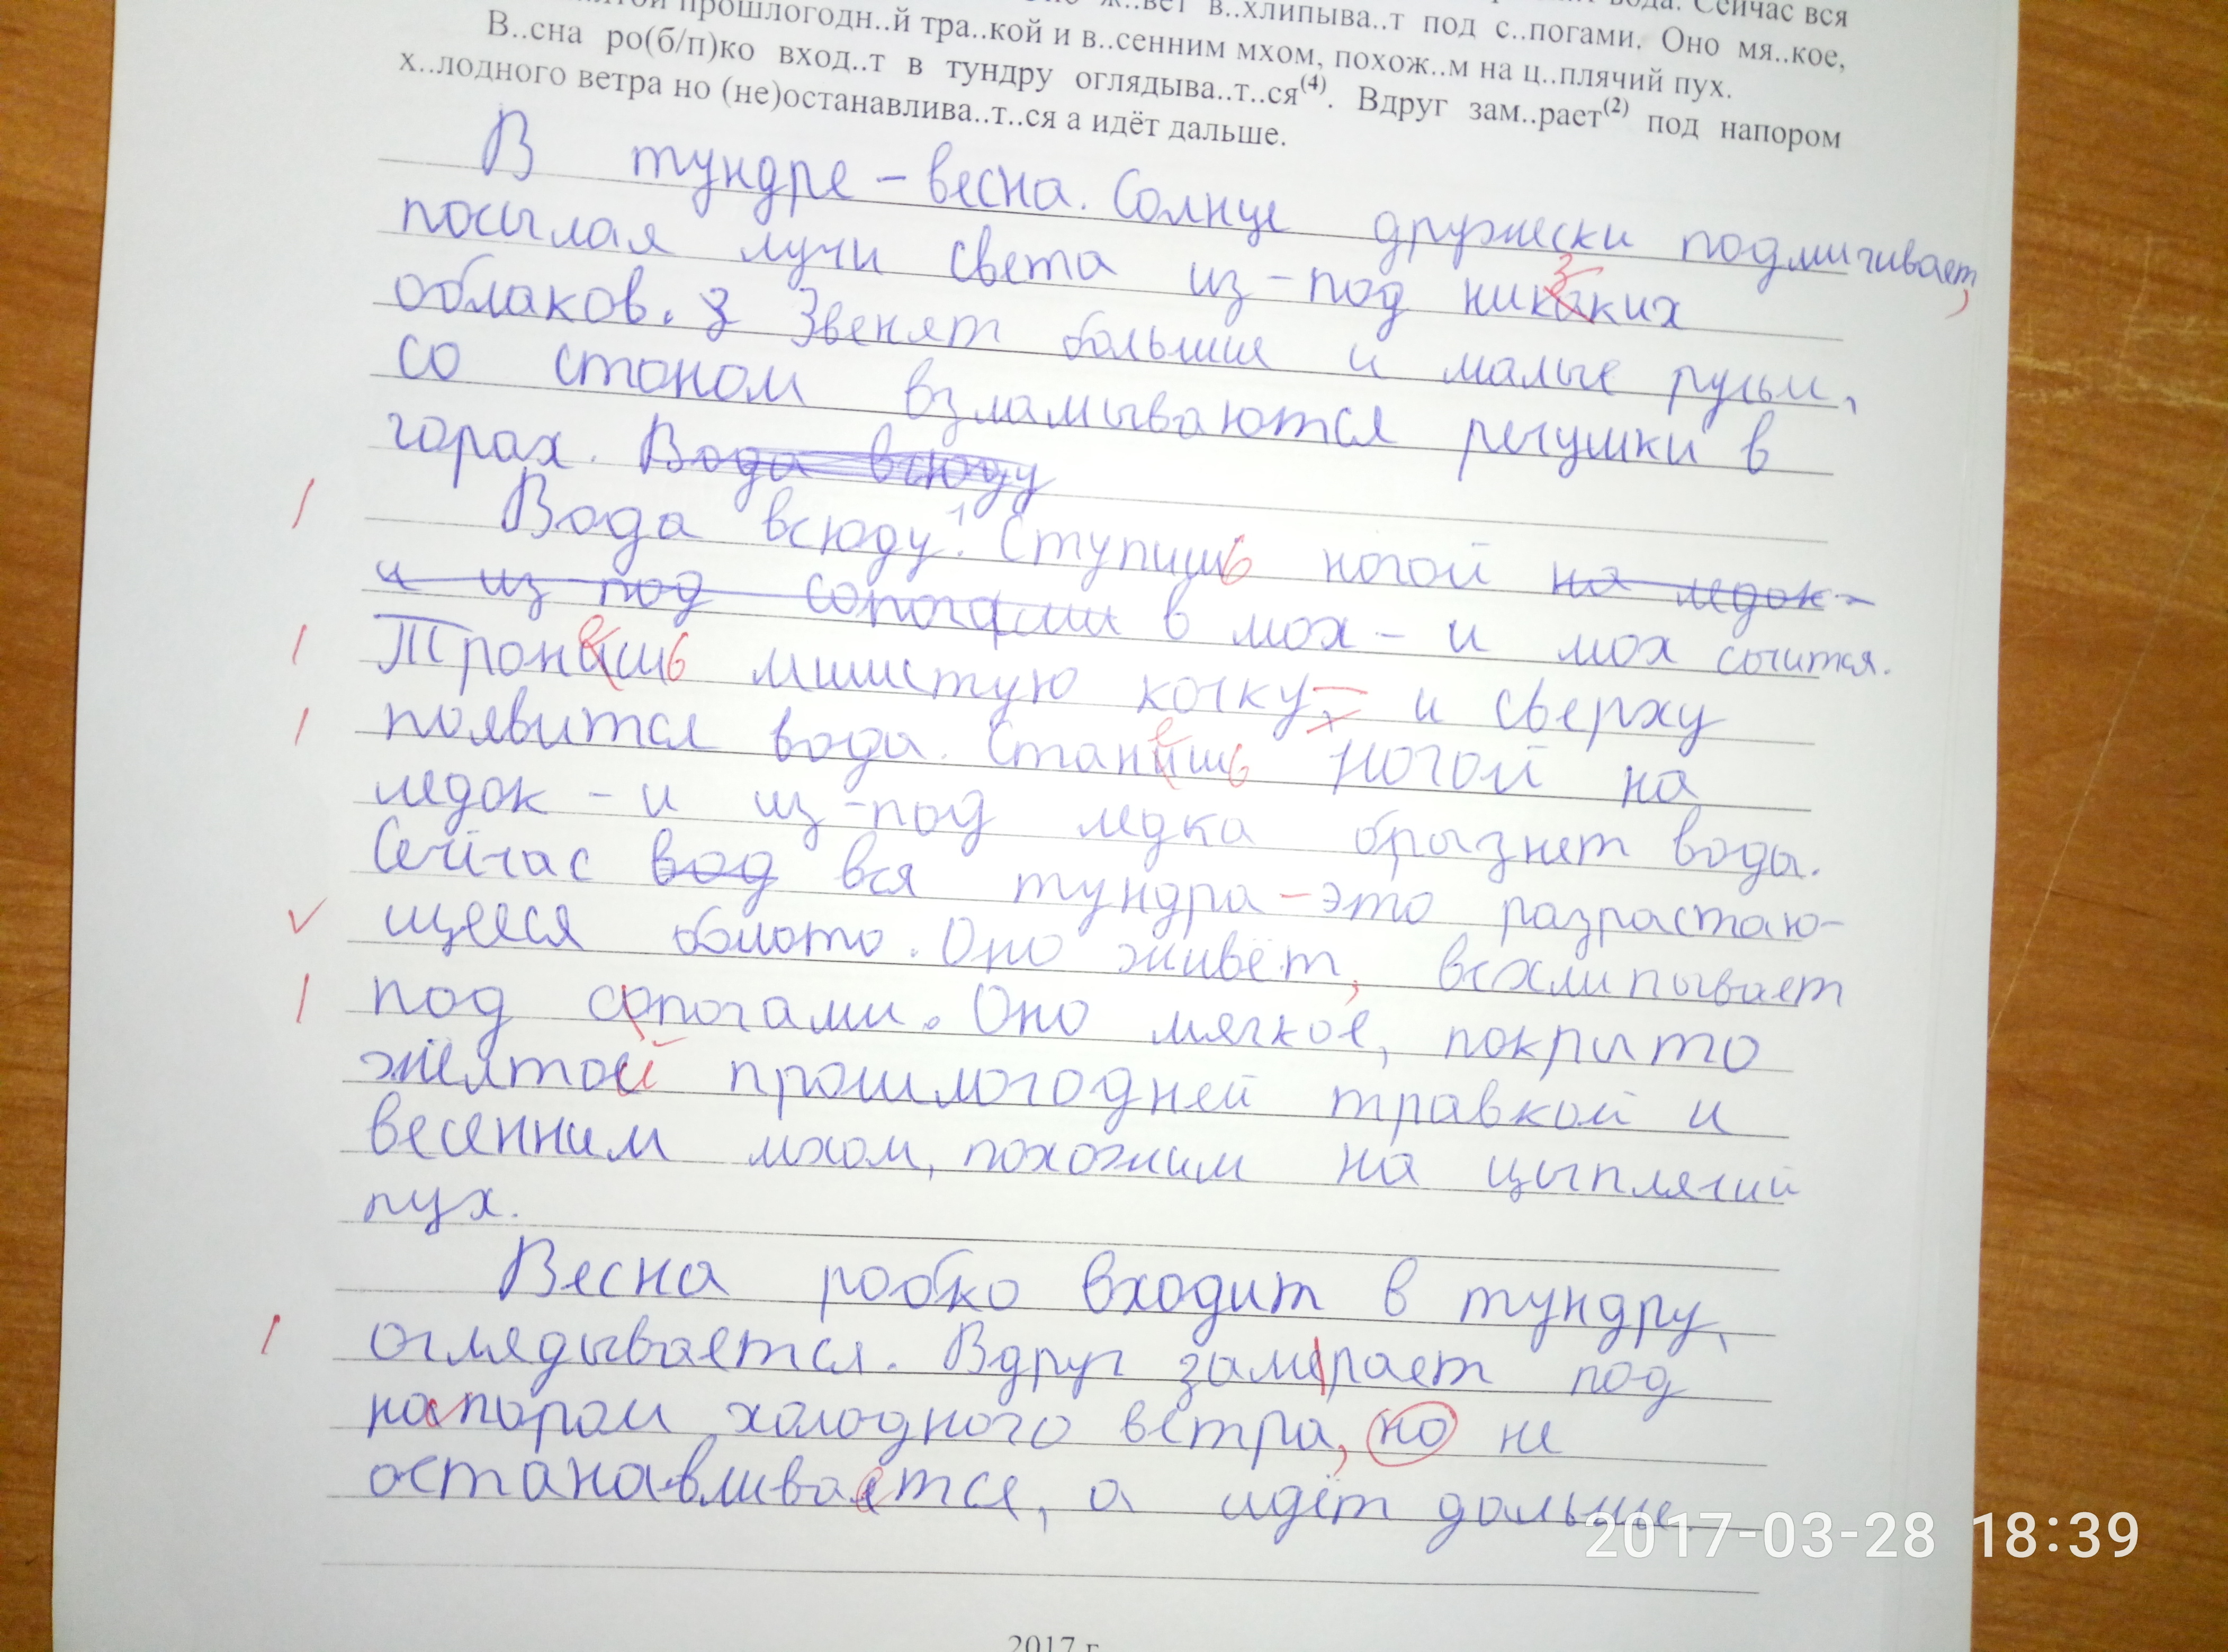 прошлогодн..й тра..кой и в..сенним мхом, похож..м на ц..плячий пух.
ж..вёт в..хлипыва..т под с..погами. Оно мя..кое,
вода. Сейчас вся
В..сна ро(б/п)ко вход..т в тундру оглядыва..т..ся(4). Вдруг зам..рает(2) под напором
х..лодного ветра но (не)останавлива..т..ся а идёт дальше.
В тундре – весна. Солнце дружески подмигивает,
посылая лучи света из-под низких
облаков. Звенят большие и малые ручьи,
со стоном взламываются речушки в
горах. Вода всюду
Вода всюду! Ступишь ногой на ледок –
и из под сопогами в мох – и мох сочится.
Тронешь мшистую кочку – и сверху
появится вода. Станешь ногой на
ледок – и из-под ледка брызнет воды.
Сейчас вод вся тундра – это разрастаю-
щееся болото. Оно живёт, всхлипывает
под сопогами. Оно мягкое, покрыто
жёлтой прошлогодней травкой и
весенним мхом, похожим на цыплячий
пух.
Весна робко входит в тундру,
оглядывается. Вдруг замерает под
напором холодного ветра, но не
останавливается, а идёт дальше.
2017-03-28 18:39
2017 г.